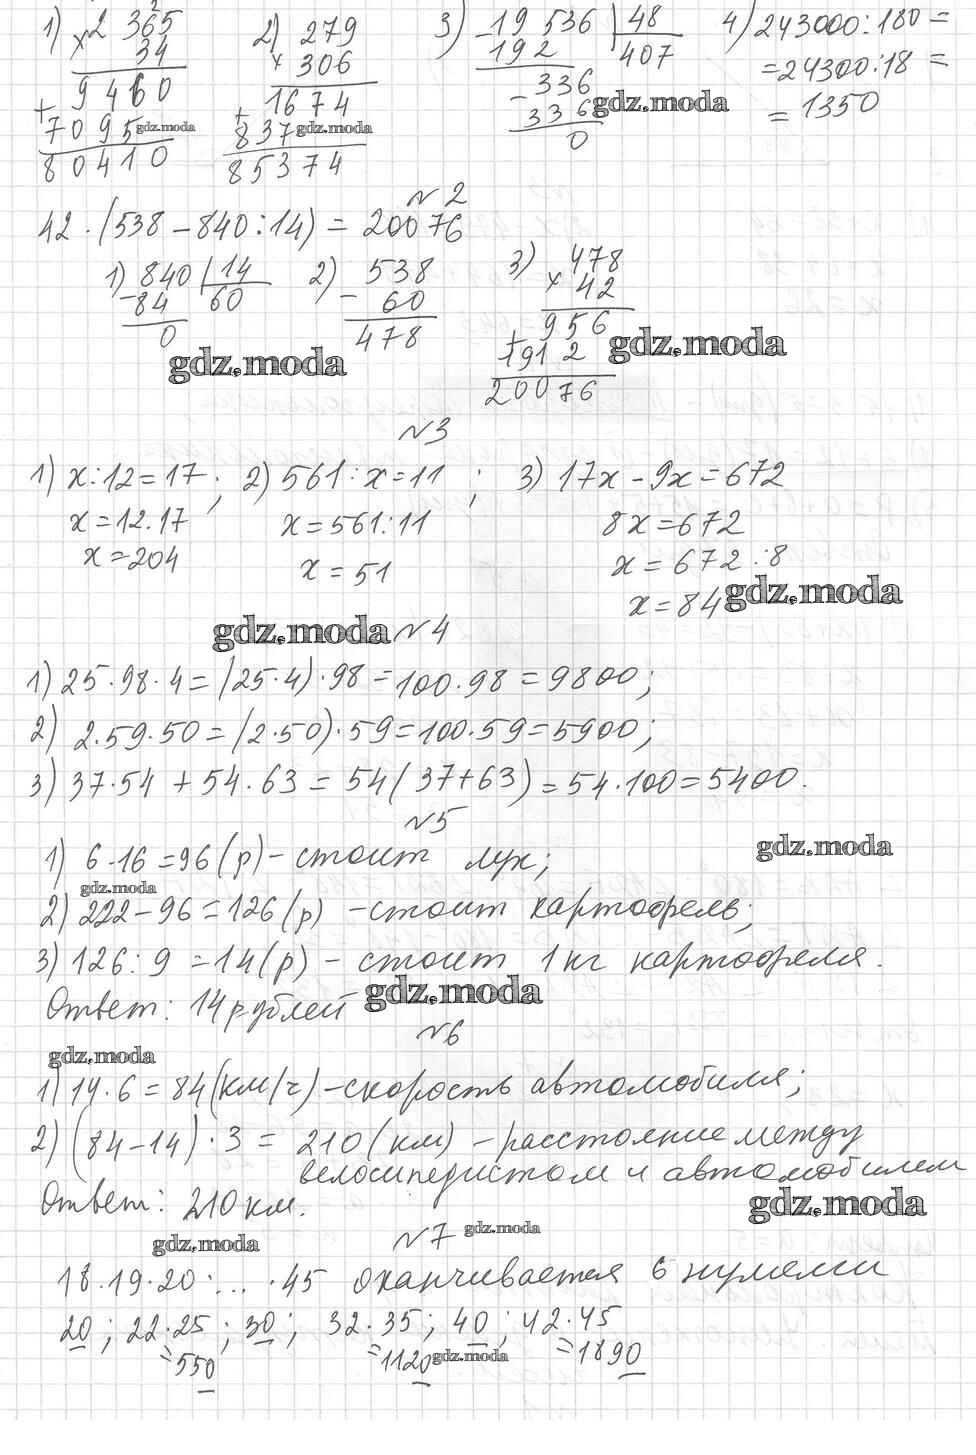 1) × 2 365   2) 279   3) 19 536 | 48   4) 243000 : 180 =
34   × 306   - 192   407   = 24300 : 18 =
+ 9 460   + 1674   - 336   = 1350
7 0 9 5   837   336
80410   85374   0
gdz.moda   gdz.moda   gdz.moda
№2
42 · (538 - 840 : 14) = 20076
1) 840 | 14   2) 538   3) 478
- 84   60   - 60   × 42
0   478   956
+ 191 2
20076
gdz.moda   gdz.moda
№3
1) x : 12 = 17 ; 2) 561 : x = 11 ; 3) 17x - 9x = 672
x = 12 · 17   x = 561 : 11   8x = 672
x = 204   x = 51   x = 672 : 8
x = 84 gdz.moda
gdz.moda №4
1) 25 · 98 · 4 = (25 · 4) · 98 = 100 · 98 = 9800;
2) 2 · 59 · 50 = (2 · 50) · 59 = 100 · 59 = 5900;
3) 37 · 54 + 54 · 63 = 54 (37 + 63) = 54 · 100 = 5400.
№5
1) 6 · 16 = 96 (р) - стоит лук;
gdz.moda
gdz.moda
2) 222 - 96 = 126 (р) - стоит картофель;
3) 126 : 9 = 14 (р) - стоит 1 кг картофеля.
Ответ: 14 рублей gdz.moda
№6
gdz.moda
1) 14 · 6 = 84 (км/ч) - скорость автомобиля;
2) (84 - 14) · 3 = 210 (км) - расстояние между
велосипедистом и автомобилем
Ответ: 210 км.
gdz.moda
gdz.moda №7 gdz.moda
18 · 19 · 20 · ... · 45 оканчивается 6 нулями
20 ; 22 · 25 ; 30 ; 32 · 35 ; 40 ; 42 · 45
= 550   = 1120   = 1890
gdz.moda